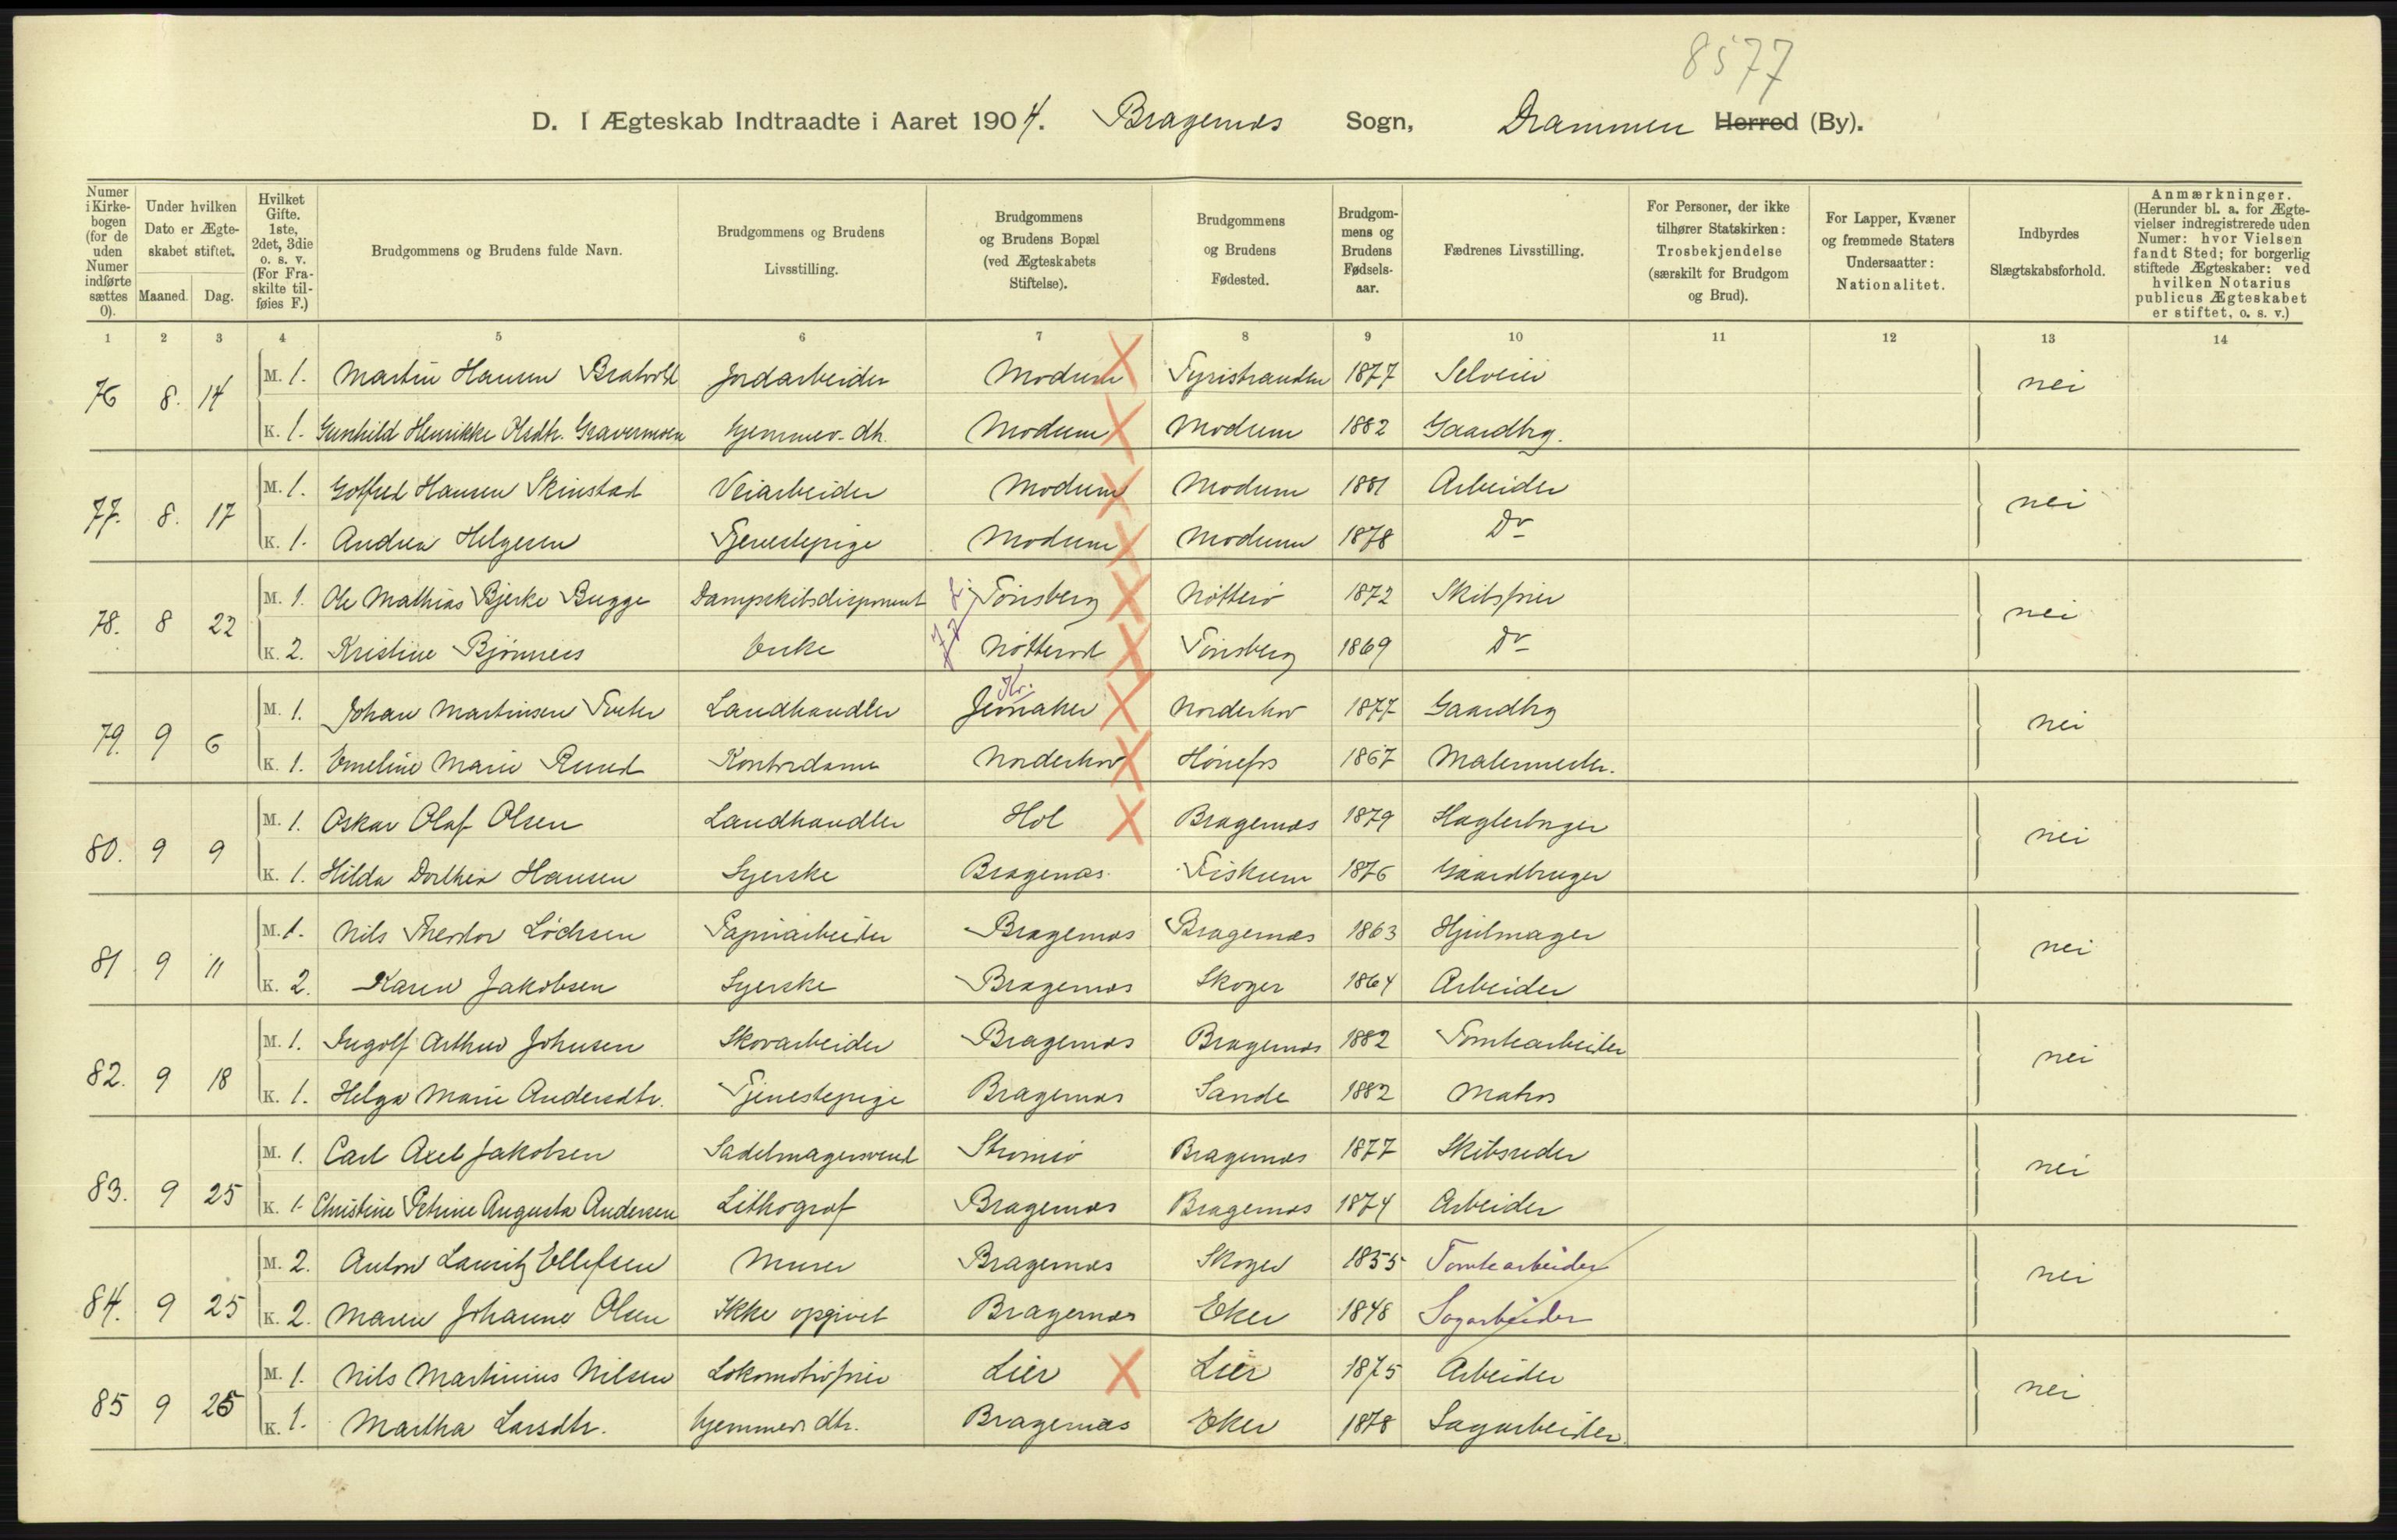 8577
D. I Ægteskab Indtraadte i Aaret 1904. Bragernæs Sogn, Drammen Herred (By).
Numer i Kirkebogen (for de uden Numer indførte sættes 0). | Under hvilken Dato er Ægteskabet stiftet. Maaned. Dag. | Hvilket Gifte. 1ste, 2det, 3die o. s. v. (For Fraskilte tilføies F.) | Brudgommens og Brudens fulde Navn. | Brudgommens og Brudens Livsstilling. | Brudgommens og Brudens Bopæl (ved Ægteskabets Stiftelse). | Brudgommens og Brudens Fødested. | Brudgommens og Brudens Fødselsaar. | Fædrenes Livsstilling. | For Personer, der ikke tilhører Statskirken: Trosbekjendelse (særskilt for Brudgom og Brud). | For Lapper, Kvæner og fremmede Staters Undersaatter: Nationalitet. | Indbyrdes Slægtskabsforhold. | Anmærkninger. (Herunder bl. a. for Ægtevielser indregistrerede uden Numer: hvor Vielsen fandt Sted; for borgerlig stiftede Ægteskaber: ved hvilken Notarius publicus Ægteskabet er stiftet, o. s. v.)
1 2 3 4 5 6 7 8 9 10 11 12 13 14
76 8. 14 M. 1. Martin Hansen Bratvold Jordarbeider Modum Tyristranden 1877 Selveier nei
K. 1. Gunhild Henrikke Olsdtr. Gravermoen hjemmev. dtr. Modum Modum 1882 Gaardbrg.
77. 8. 17 M. 1. Gotfred Hansen Skinstad Veiarbeider Modum Modum 1881 Arbeider nei
K. 1. Andrea Helgesen Tjenestepige Modum Modum 1878 Do
78. 8 22 M. 1. Ole Mathias Bjerke Bugge Dampskibsdisponent Tønsberg Nøtterø 1872 Skibsfører nei
K. 2. Kristine Bjønnes Enke Nøtterø Tønsberg 1869 Do
79. 9 6 M. 1. Johan Martinsen Tveter Landhandler Jevnaker Norderhov 1877 Gaardbrg nei
K. 1. Emeline Marie Ruud Kontordame Norderhov Hønefos 1867 Malermester.
80. 9 9 M. 1. Oskar Olaf Olsen Landhandler Hol Bragernæs 1879 nei
K. 1. Hilda Dorthea Hansen Syerske Bragernæs Fiskum 1876 Gaardbruger
81 9 11 M. 1. Nils Theodor Lóchsen Papirarbeider Bragernæs Bragernæs 1863 Hjulmager nei
K. 2. Karen Jakobsen Syerske Bragernæs Skoger 1864 Arbeider
82. 9 18 M. 1. Ingolf Arthur Johnsen Skovarbeider Bragernæs Bragernæs 1882 Tomtearbeider nei
K. 1. Helga Marie Andersdtr. Tjenestepige Bragernæs Sande 1882 Matros
83. 9 25 M. 1. Carl Axel Jakobsen Sadelmagersvend Strømsø Bragernæs 1877 Skibsreder nei
K. 1. Christine Petrine Augusta Andersen Lithograf Bragernæs Bragernæs 1874 Arbeider
84. 9 25 M. 2. Anton Lauritz Ellefsen Murer Bragernæs Skoger 1855 Tomtearbeider nei
K. 2. Maren Johanne Olsen Ikke opgivet Bragernæs Eker 1848 Sagarbeider
85 9 25 M. 1. Nils Martinius Nilsen Lokomotivfører Lier Lier 1875 Arbeider nei
K. 1. Martha Larsdtr. hjemmev. dtr. Bragernæs Eker 1878 Sagarbeider.